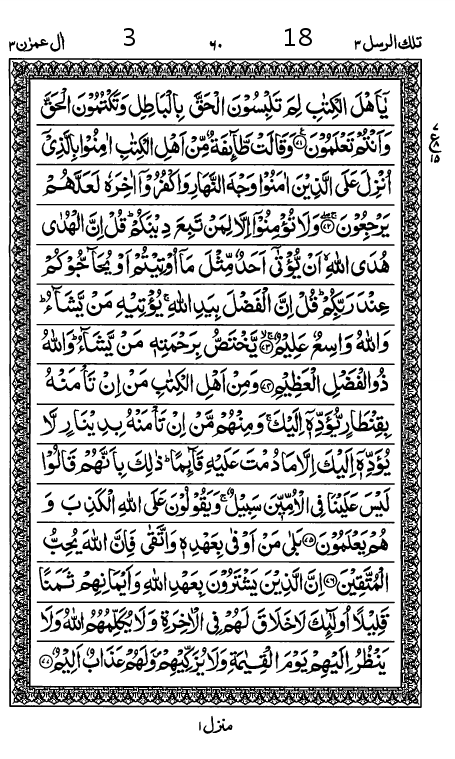 تلك الرسل ٣ 18 ٦٠ 3 اٰل عمرٰن ٣
يٰٓاَهْلَ الْكِتٰبِ لِمَ تَلْبِسُوْنَ الْحَقَّ بِالْبَاطِلِ وَتَكْتُمُوْنَ الْحَقَّ
وَاَنْتُمْ تَعْلَمُوْنَ ۝٧١ وَقَالَتْ طَّآئِفَةٌ مِّنْ اَهْلِ الْكِتٰبِ اٰمِنُوْا بِالَّذِيْٓ
اُنْزِلَ عَلَى الَّذِيْنَ اٰمَنُوْا وَجْهَ النَّهَارِ وَاكْفُرُوْٓا اٰخِرَهٗ لَعَلَّهُمْ
يَرْجِعُوْنَ ۝٧٢ وَلَا تُؤْمِنُوْٓا اِلَّا لِمَنْ تَبِعَ دِيْنَكُمْ ؕ قُلْ اِنَّ الْهُدٰى
هُدَى اللّٰهِ ۙ اَنْ يُّؤْتٰٓى اَحَدٌ مِّثْلَ مَاۤ اُوْتِيْتُمْ اَوْ يُحَآجُّوْكُمْ
عِنْدَ رَبِّكُمْ ؕ قُلْ اِنَّ الْفَضْلَ بِيَدِ اللّٰهِ ۚ يُؤْتِيْهِ مَنْ يَّشَآءُ ؕ
وَاللّٰهُ وَاسِعٌ عَلِيْمٌ ۝٧٣ يَّخْتَصُّ بِرَحْمَتِهٖ مَنْ يَّشَآءُ ؕ وَاللّٰهُ
ذُو الْفَضْلِ الْعَظِيْمِ ۝٧٤ وَمِنْ اَهْلِ الْكِتٰبِ مَنْ اِنْ تَاْمَنْهُ
بِقِنْطَارٍ يُّؤَدِّهٖٓ اِلَيْكَ ۚ وَمِنْهُمْ مَّنْ اِنْ تَاْمَنْهُ بِدِيْنَارٍ لَّا
يُؤَدِّهٖٓ اِلَيْكَ اِلَّا مَا دُمْتَ عَلَيْهِ قَآئِمًا ؕ ذٰلِكَ بِاَنَّهُمْ قَالُوْا
لَيْسَ عَلَيْنَا فِي الْاُمِّيّٖنَ سَبِيْلٌ ۚ وَيَقُوْلُوْنَ عَلَى اللّٰهِ الْكَذِبَ وَ
هُمْ يَعْلَمُوْنَ ۝٧٥ بَلٰى مَنْ اَوْفٰى بِعَهْدِهٖ وَاتَّقٰى فَاِنَّ اللّٰهَ يُحِبُّ
الْمُتَّقِيْنَ ۝٧٦ اِنَّ الَّذِيْنَ يَشْتَرُوْنَ بِعَهْدِ اللّٰهِ وَاَيْمَانِهِمْ ثَمَنًا
قَلِيْلًا اُولٰٓئِكَ لَا خَلَاقَ لَهُمْ فِي الْاٰخِرَةِ وَلَا يُكَلِّمُهُمُ اللّٰهُ وَلَا
يَنْظُرُ اِلَيْهِمْ يَوْمَ الْقِيٰمَةِ وَلَا يُزَكِّيْهِمْ ۪ وَلَهُمْ عَذَابٌ اَلِيْمٌ ۝٧٧
٧
ع
١٥
منزل ١